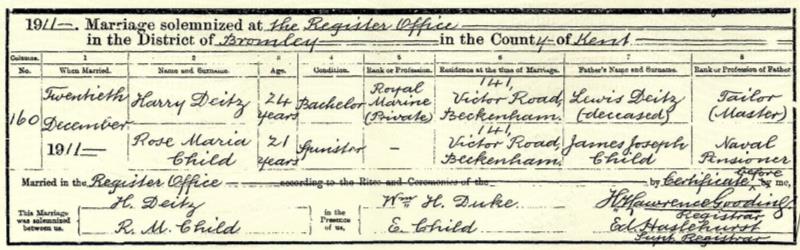 1911—. Marriage solemnized at the Register Office
in the District of Bromley in the County of Kent
Columns. 1 2 3 4 5 6 7 8
No. When Married. Name and Surname. Age. Condition. Rank or Profession. Residence at the time of Marriage. Father's Name and Surname. Rank or Profession of Father
160 Twentieth December 1911— Harry Deitz 24 years Bachelor Royal Marine (Private) 141, Victor Road, Beckenham. Lewis Deitz (deceased) Tailor (Master)
Rose Maria Child 21 years Spinster – 141, Victor Road, Beckenham. James Joseph Child Naval Pensioner
Married in the Register Office according to the Rites and Ceremonies of the by Certificate before by me,
This Marriage was solemnized between us, H. Deitz R. M. Child in the Presence of us, Wm H. Duke E. Child H. Lawrence Gooding Registrar
Ed. Haslehurst Supt Registrar